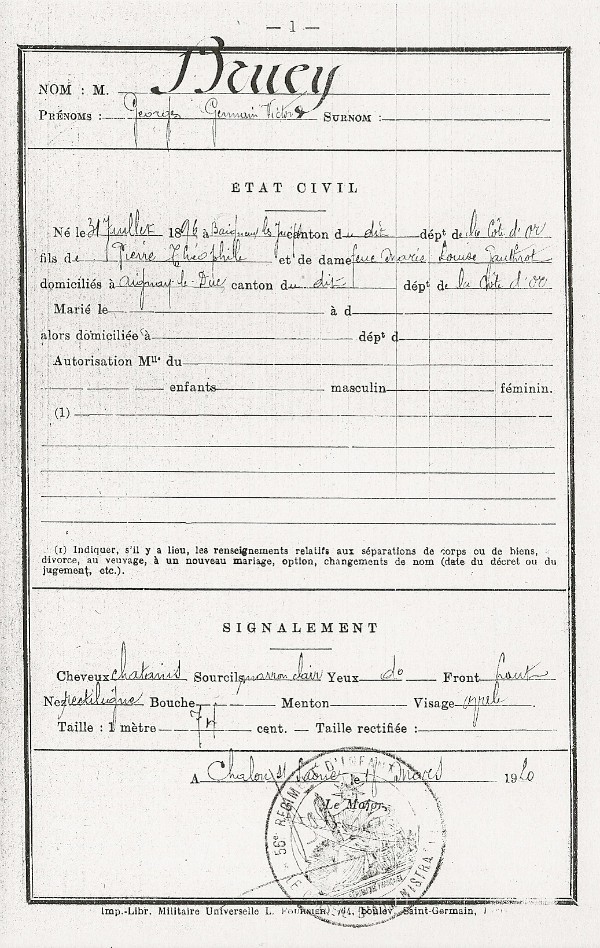 — 1 —
NOM : M. Brucy
PRÉNOMS : Georges Germain Victor SURNOM :
ÉTAT CIVIL
Né le 31 Juillet 1896 à Baigneux les Juifs canton du dit dépt de la Côte d'or
fils de Pierre Théophile et de dame feue Marie Louise Gauthrot
domiciliés à Aignay-le-Duc canton du dit dépt de la Côte d'or
Marié le à d
alors domiciliée à dépt d
Autorisation Mlle du
enfants masculin féminin.
(1)
(1) Indiquer, s'il y a lieu, les renseignements relatifs aux séparations de corps ou de biens,
divorce, au veuvage, à un nouveau mariage, option, changements de nom (date du décret ou du
jugement, etc.).
SIGNALEMENT
Cheveux chatains Sourcils marron clair Yeux do Front haut
Nez rectiligne Bouche Menton Visage
Taille : 1 mètre 74 cent. — Taille rectifiée :
A Chalon s/ Saône le mars 1920
Le Major,
56e REGIMENT D'INFANTERIE
Imp.-Libr. Militaire Universelle L. FOURNIER, boulev. Saint-Germain,